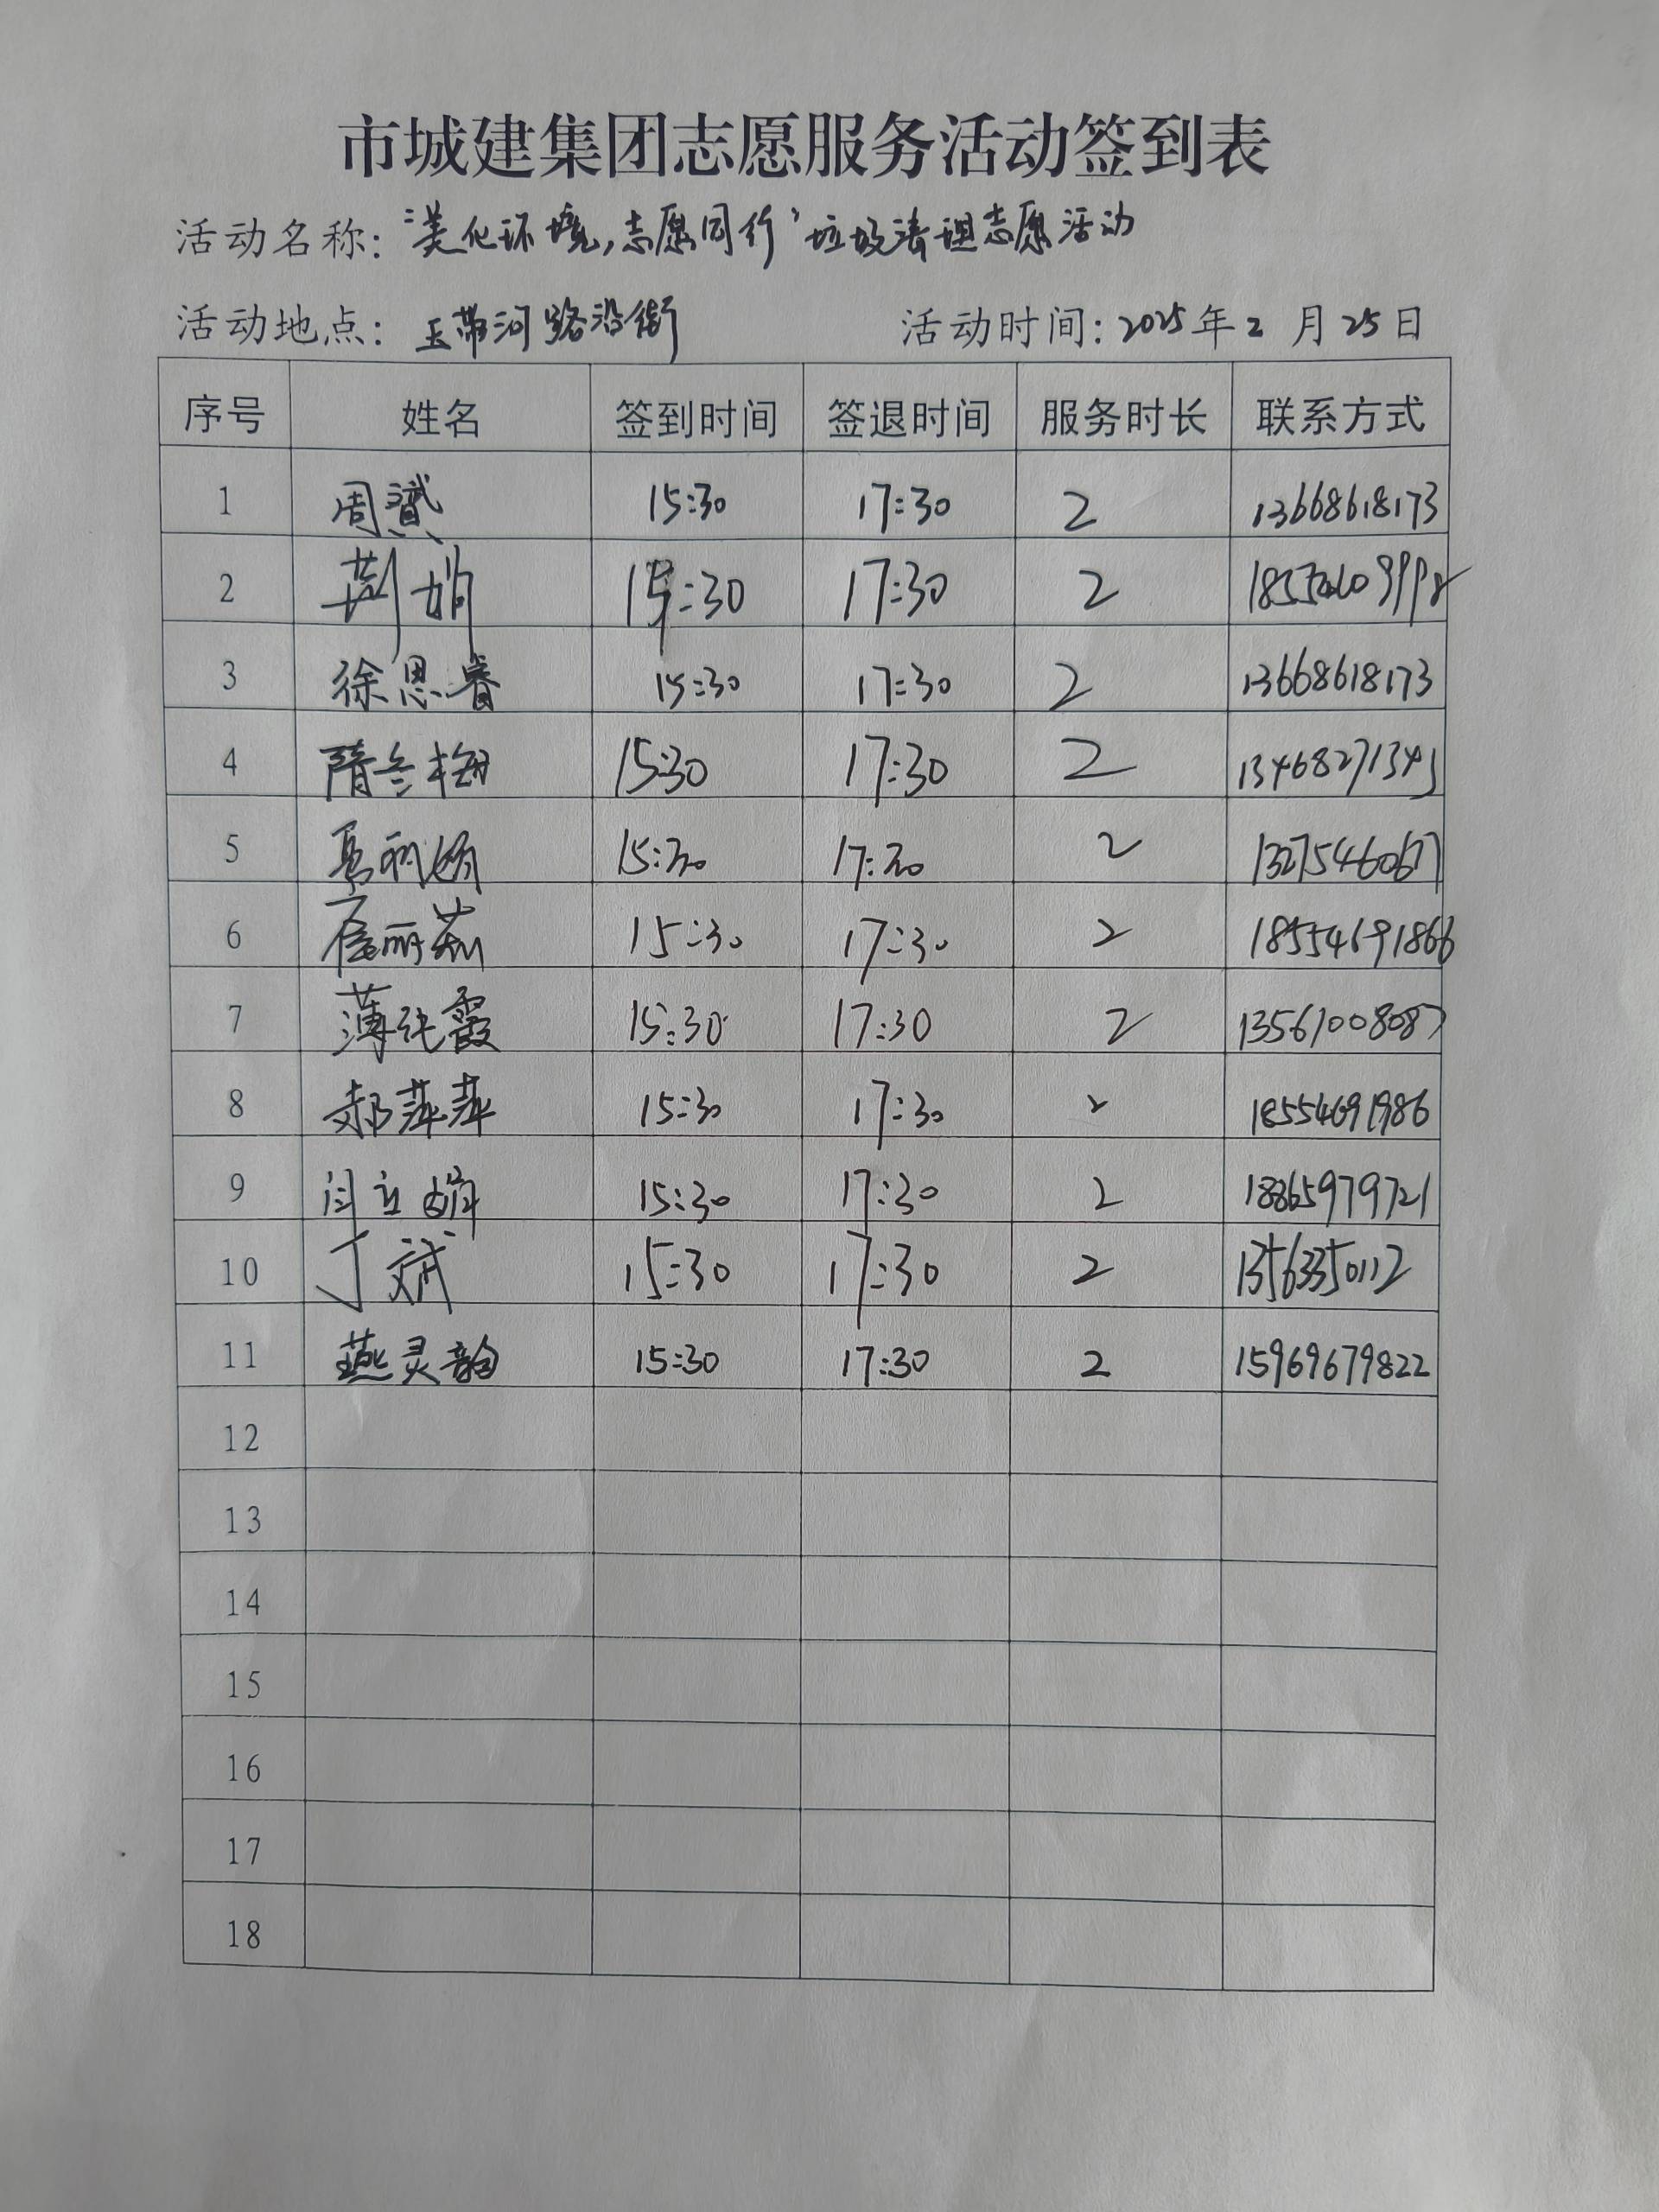 市城建集团志愿服务活动签到表
活动名称：“美化环境，志愿同行”垃圾清理志愿活动
活动地点：玉带河路沿街 活动时间：2025年2月25日
序号 姓名 签到时间 签退时间 服务时长 联系方式
1 周赟 15:30 17:30 2 13668618173
2 荆娟 15:30 17:30 2
3 徐思睿 15:30 17:30 2 13668618173
4 隋冬梅 15:30 17:30 2 13468271345
5 15:30 17:30 2 13275460671
6 15:30 17:30 2 18554691866
7 薄纯霞 15:30 17:30 2 13561008087
8 郝萍萍 15:30 17:30 2 18554691986
9 闫立娟 15:30 17:30 2 18865979721
10 丁斌 15:30 17:30 2 13563350112
11 燕灵韵 15:30 17:30 2 15969679822
12
13
14
15
16
17
18